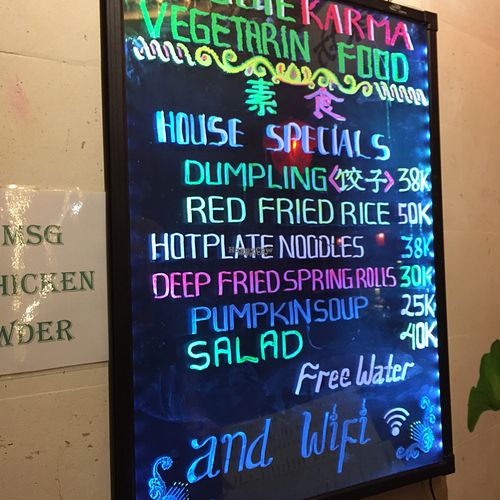 KARMA
VEGETARIN FOOD
素食
HOUSE SPECIALS
DUMPLING <饺子> 38K
RED FRIED RICE 50K
HOTPLATE NOODLES 38K
DEEP FRIED SPRING ROLLS 30K
PUMPKIN SOUP 25K
SALAD 40K
Free Water
and Wifi
MSG
HICKEN
WDER
HappyCow